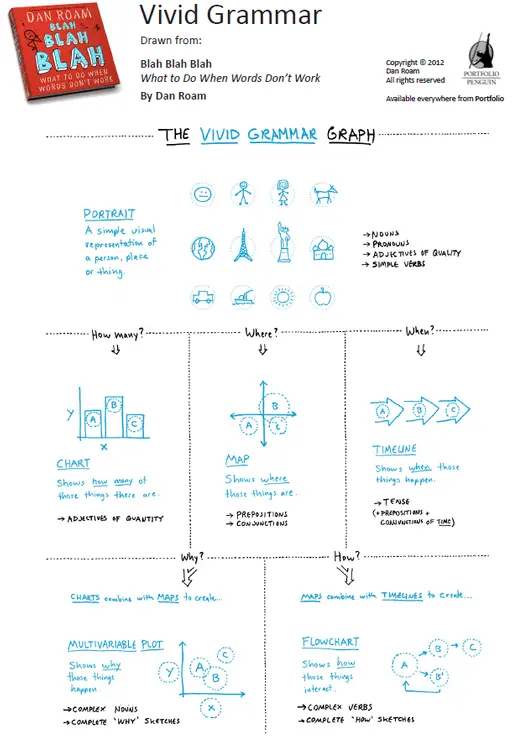 DAN ROAM
BLAH
BLAH
BLAH
WHAT TO DO WHEN
WORDS DON'T WORK
Vivid Grammar
Drawn from:
Blah Blah Blah
What to Do When Words Don't Work
By Dan Roam
Copyright © 2012
Dan Roam
All rights reserved
Available everywhere from Portfolio
PORTFOLIO
PENGUIN
THE VIVID GRAMMAR GRAPH
PORTRAIT
A simple visual
representation of
a person, place
or thing.
→ NOUNS
→ PRONOUNS
→ ADJECTIVES OF QUALITY
→ SIMPLE VERBS
How many?
Y
A
B
C
X
CHART
Shows how many of
those things there are.
→ ADJECTIVES OF QUANTITY
Where?
B
A
C
MAP
Shows where
those things are.
→ PREPOSITIONS
→ CONJUNCTIONS
When?
A B C
TIMELINE
Shows when those
things happen.
→ TENSE
(+ PREPOSITIONS +
CONJUNCTIONS OF TIME)
Why?
CHARTS combine with MAPS to create...
MULTIVARIABLE PLOT
Shows why
those things
happen.
Y
A
B
C
X
→ COMPLEX NOUNS
→ COMPLETE 'WHY' SKETCHES
How?
MAPS combine with TIMELINES to create...
FLOWCHART
Shows how
those things
interact.
A
B → C
B'
→ COMPLEX VERBS
→ COMPLETE 'HOW' SKETCHES